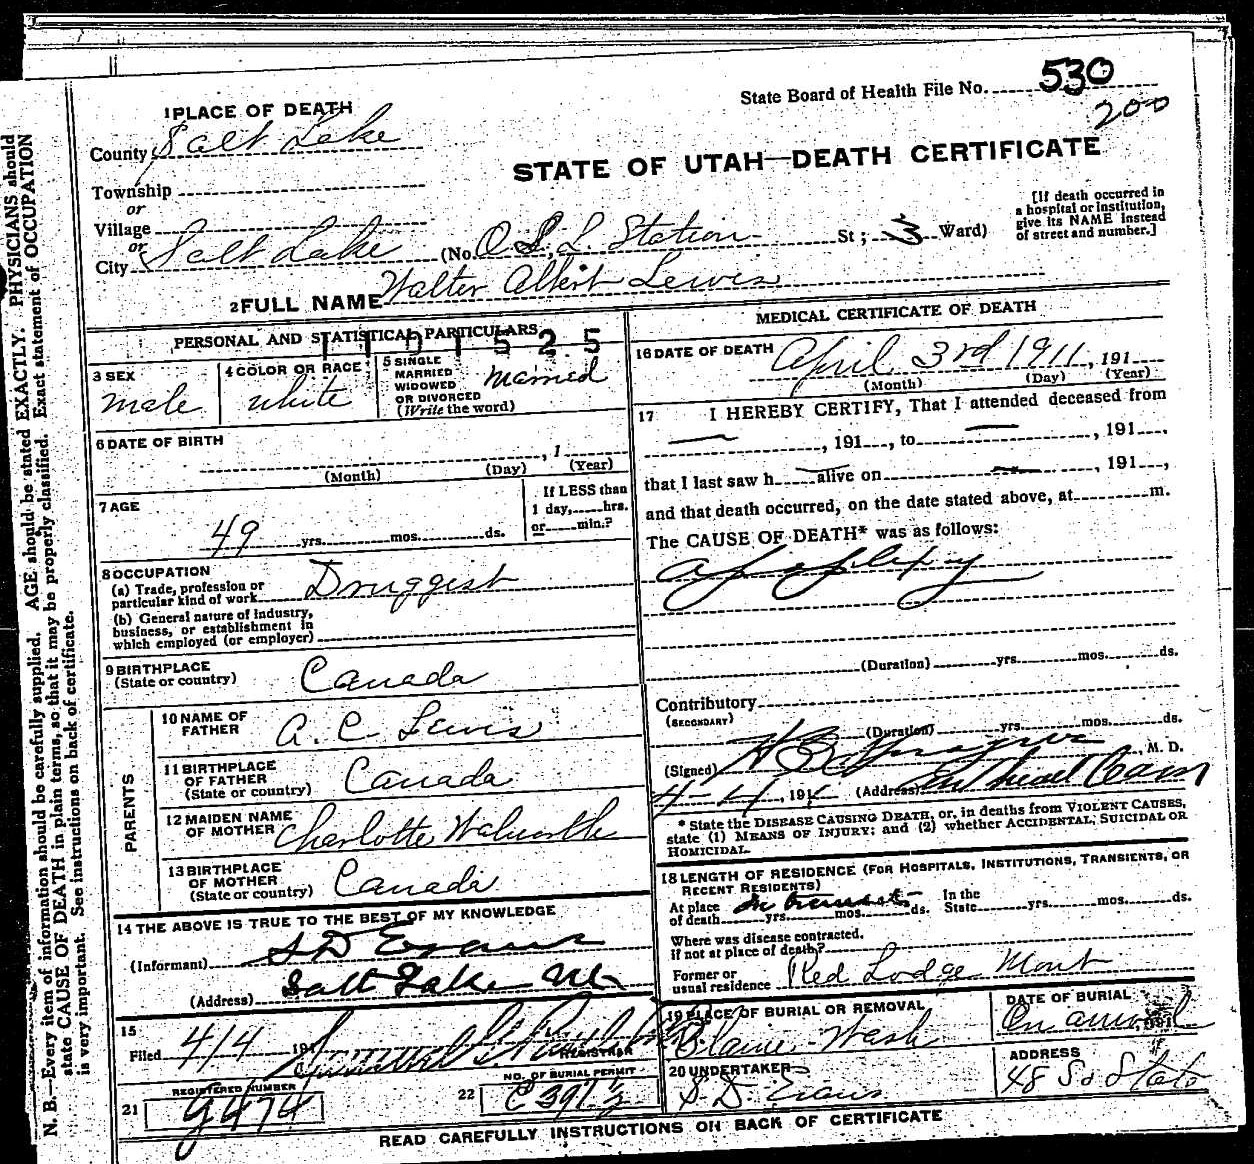 State Board of Health File No. 530
200
1 PLACE OF DEATH
County Salt Lake
STATE OF UTAH—DEATH CERTIFICATE
Township
or
Village
or
City Salt Lake (No. O S L. Station St; 3 Ward)
[If death occurred in
a hospital or institution,
give its NAME instead
of street and number.]
2 FULL NAME Walter Albert Lewis
PERSONAL AND STATISTICAL PARTICULARS
1101525
3 SEX
male
4 COLOR OR RACE
white
5 SINGLE
MARRIED
WIDOWED
OR DIVORCED
(Write the word)
married
6 DATE OF BIRTH
, 1
(Month) (Day) (Year)
7 AGE
49 yrs. mos. ds.
If LESS than
1 day, hrs.
or min.?
8 OCCUPATION
(a) Trade, profession or
particular kind of work Druggist
(b) General nature of industry,
business, or establishment in
which employed (or employer)
9 BIRTHPLACE
(State or country) Canada
PARENTS
10 NAME OF
FATHER A. C. Lewis
11 BIRTHPLACE
OF FATHER
(State or country) Canada
12 MAIDEN NAME
OF MOTHER Charlotte Walworth
13 BIRTHPLACE
OF MOTHER
(State or country) Canada
14 THE ABOVE IS TRUE TO THE BEST OF MY KNOWLEDGE
(Informant) S D Evans
(Address) Salt Lake
15
Filed 4/4 191
REGISTRAR
REGISTERED NUMBER
21 g474
NO. OF BURIAL PERMIT
22
MEDICAL CERTIFICATE OF DEATH
16 DATE OF DEATH April 3rd 1911, 191
(Month) (Day) (Year)
17 I HEREBY CERTIFY, That I attended deceased from
— , 191 , to — , 191 ,
that I last saw h — alive on — , 191 ,
and that death occurred, on the date stated above, at m.
The CAUSE OF DEATH* was as follows:
apoplexy
(Duration) yrs. mos. ds.
Contributory
(SECONDARY)
(Duration) yrs. mos. ds.
(Signed) , M. D.
4-4, 191 (Address)
* State the DISEASE CAUSING DEATH, or, in deaths from VIOLENT CAUSES,
state (1) MEANS OF INJURY; and (2) whether ACCIDENTAL, SUICIDAL OR
HOMICIDAL.
18 LENGTH OF RESIDENCE (FOR HOSPITALS, INSTITUTIONS, TRANSIENTS, OR
RECENT RESIDENTS)
At place In the
of death yrs. mos. ds. State yrs. mos. ds.
Where was disease contracted,
if not at place of death?
Former or
usual residence Red Lodge Mont
19 PLACE OF BURIAL OR REMOVAL
Blaine Wash
DATE OF BURIAL
On arrival 191
20 UNDERTAKER
S. D. Evans
ADDRESS
48 So State
READ CAREFULLY INSTRUCTIONS ON BACK OF CERTIFICATE
N. B.—Every item of information should be carefully supplied. AGE should be stated EXACTLY. PHYSICIANS should
state CAUSE OF DEATH in plain terms, so that it may be properly classified. Exact statement of OCCUPATION
is very important. See instructions on back of certificate.